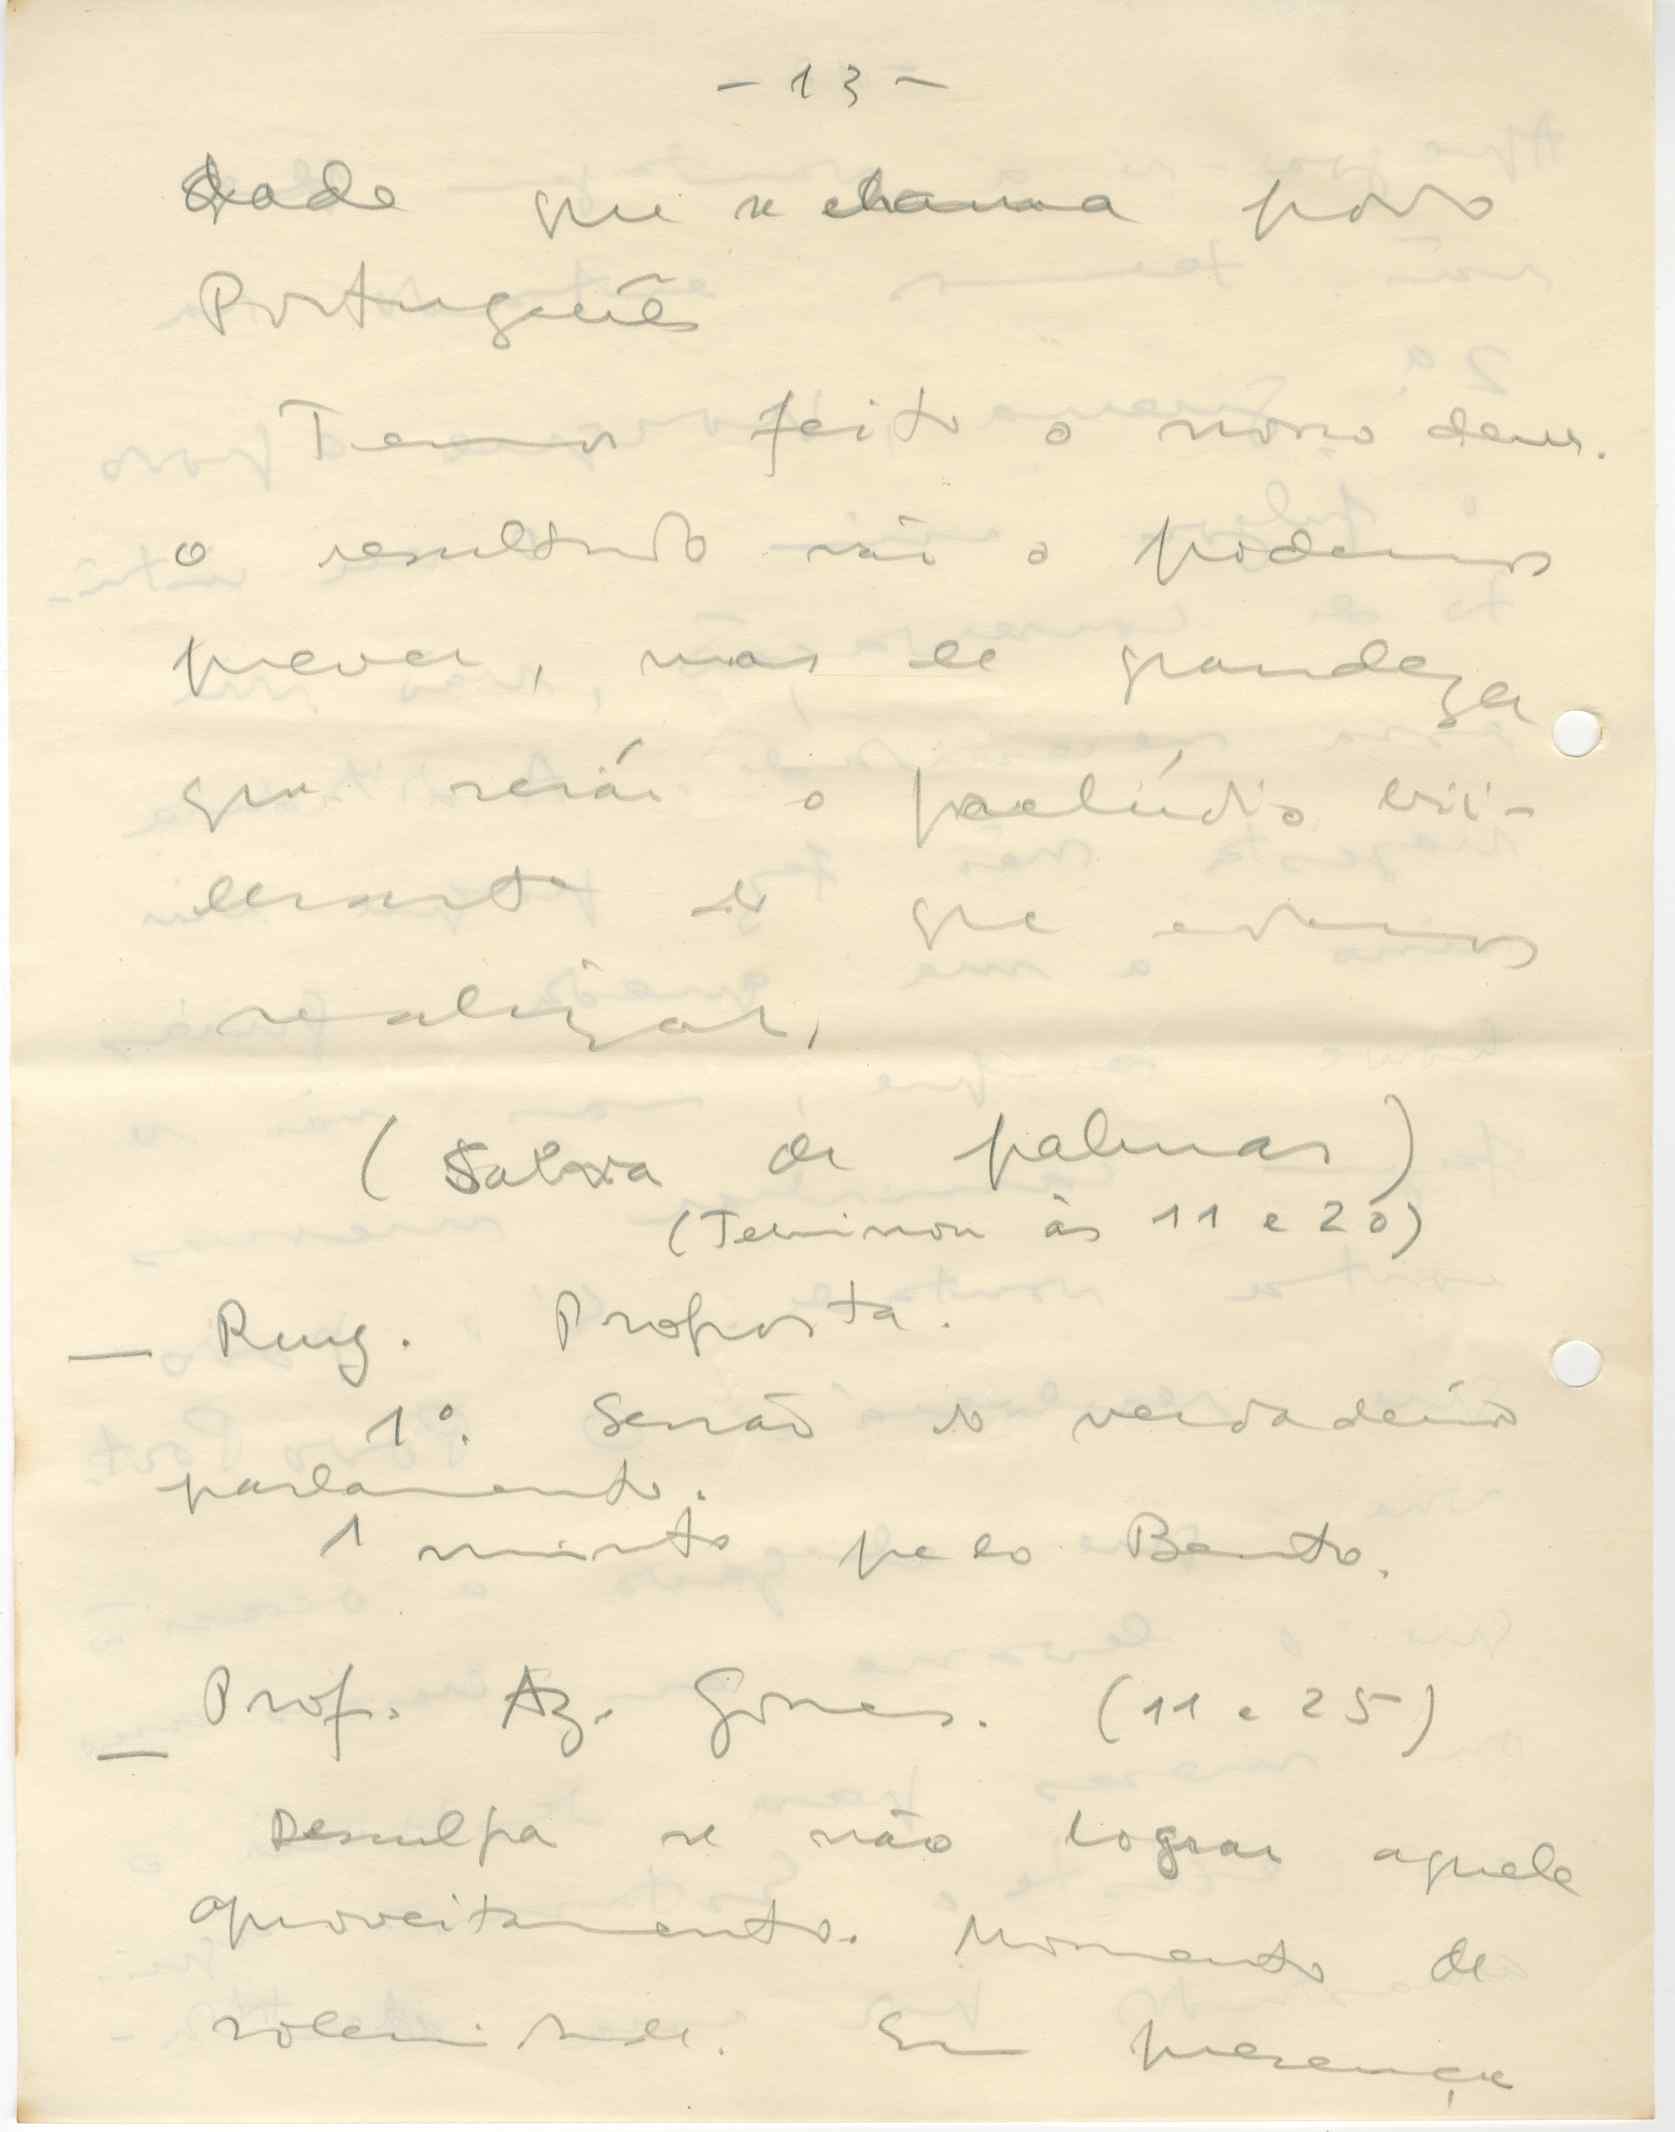 - 13 -
dade que se chama povo
Português
Temos feito o nosso dever.
o resultado não o podemos
prever, mas de grandeza
que será o prelúdio bri-
lhante do que vamos
realizar.
(Salva de palmas)
(Terminou às 11 e 20)
— Ruy. Proposta.
1º. Sessão do verdadeiro
parlamento.
1 minuto pelo Bento.
— Prof. Az. Gomes. (11 e 25)
Desculpa se não lograr aquele
aproveitamento. Momento de
solenidade. Em presença